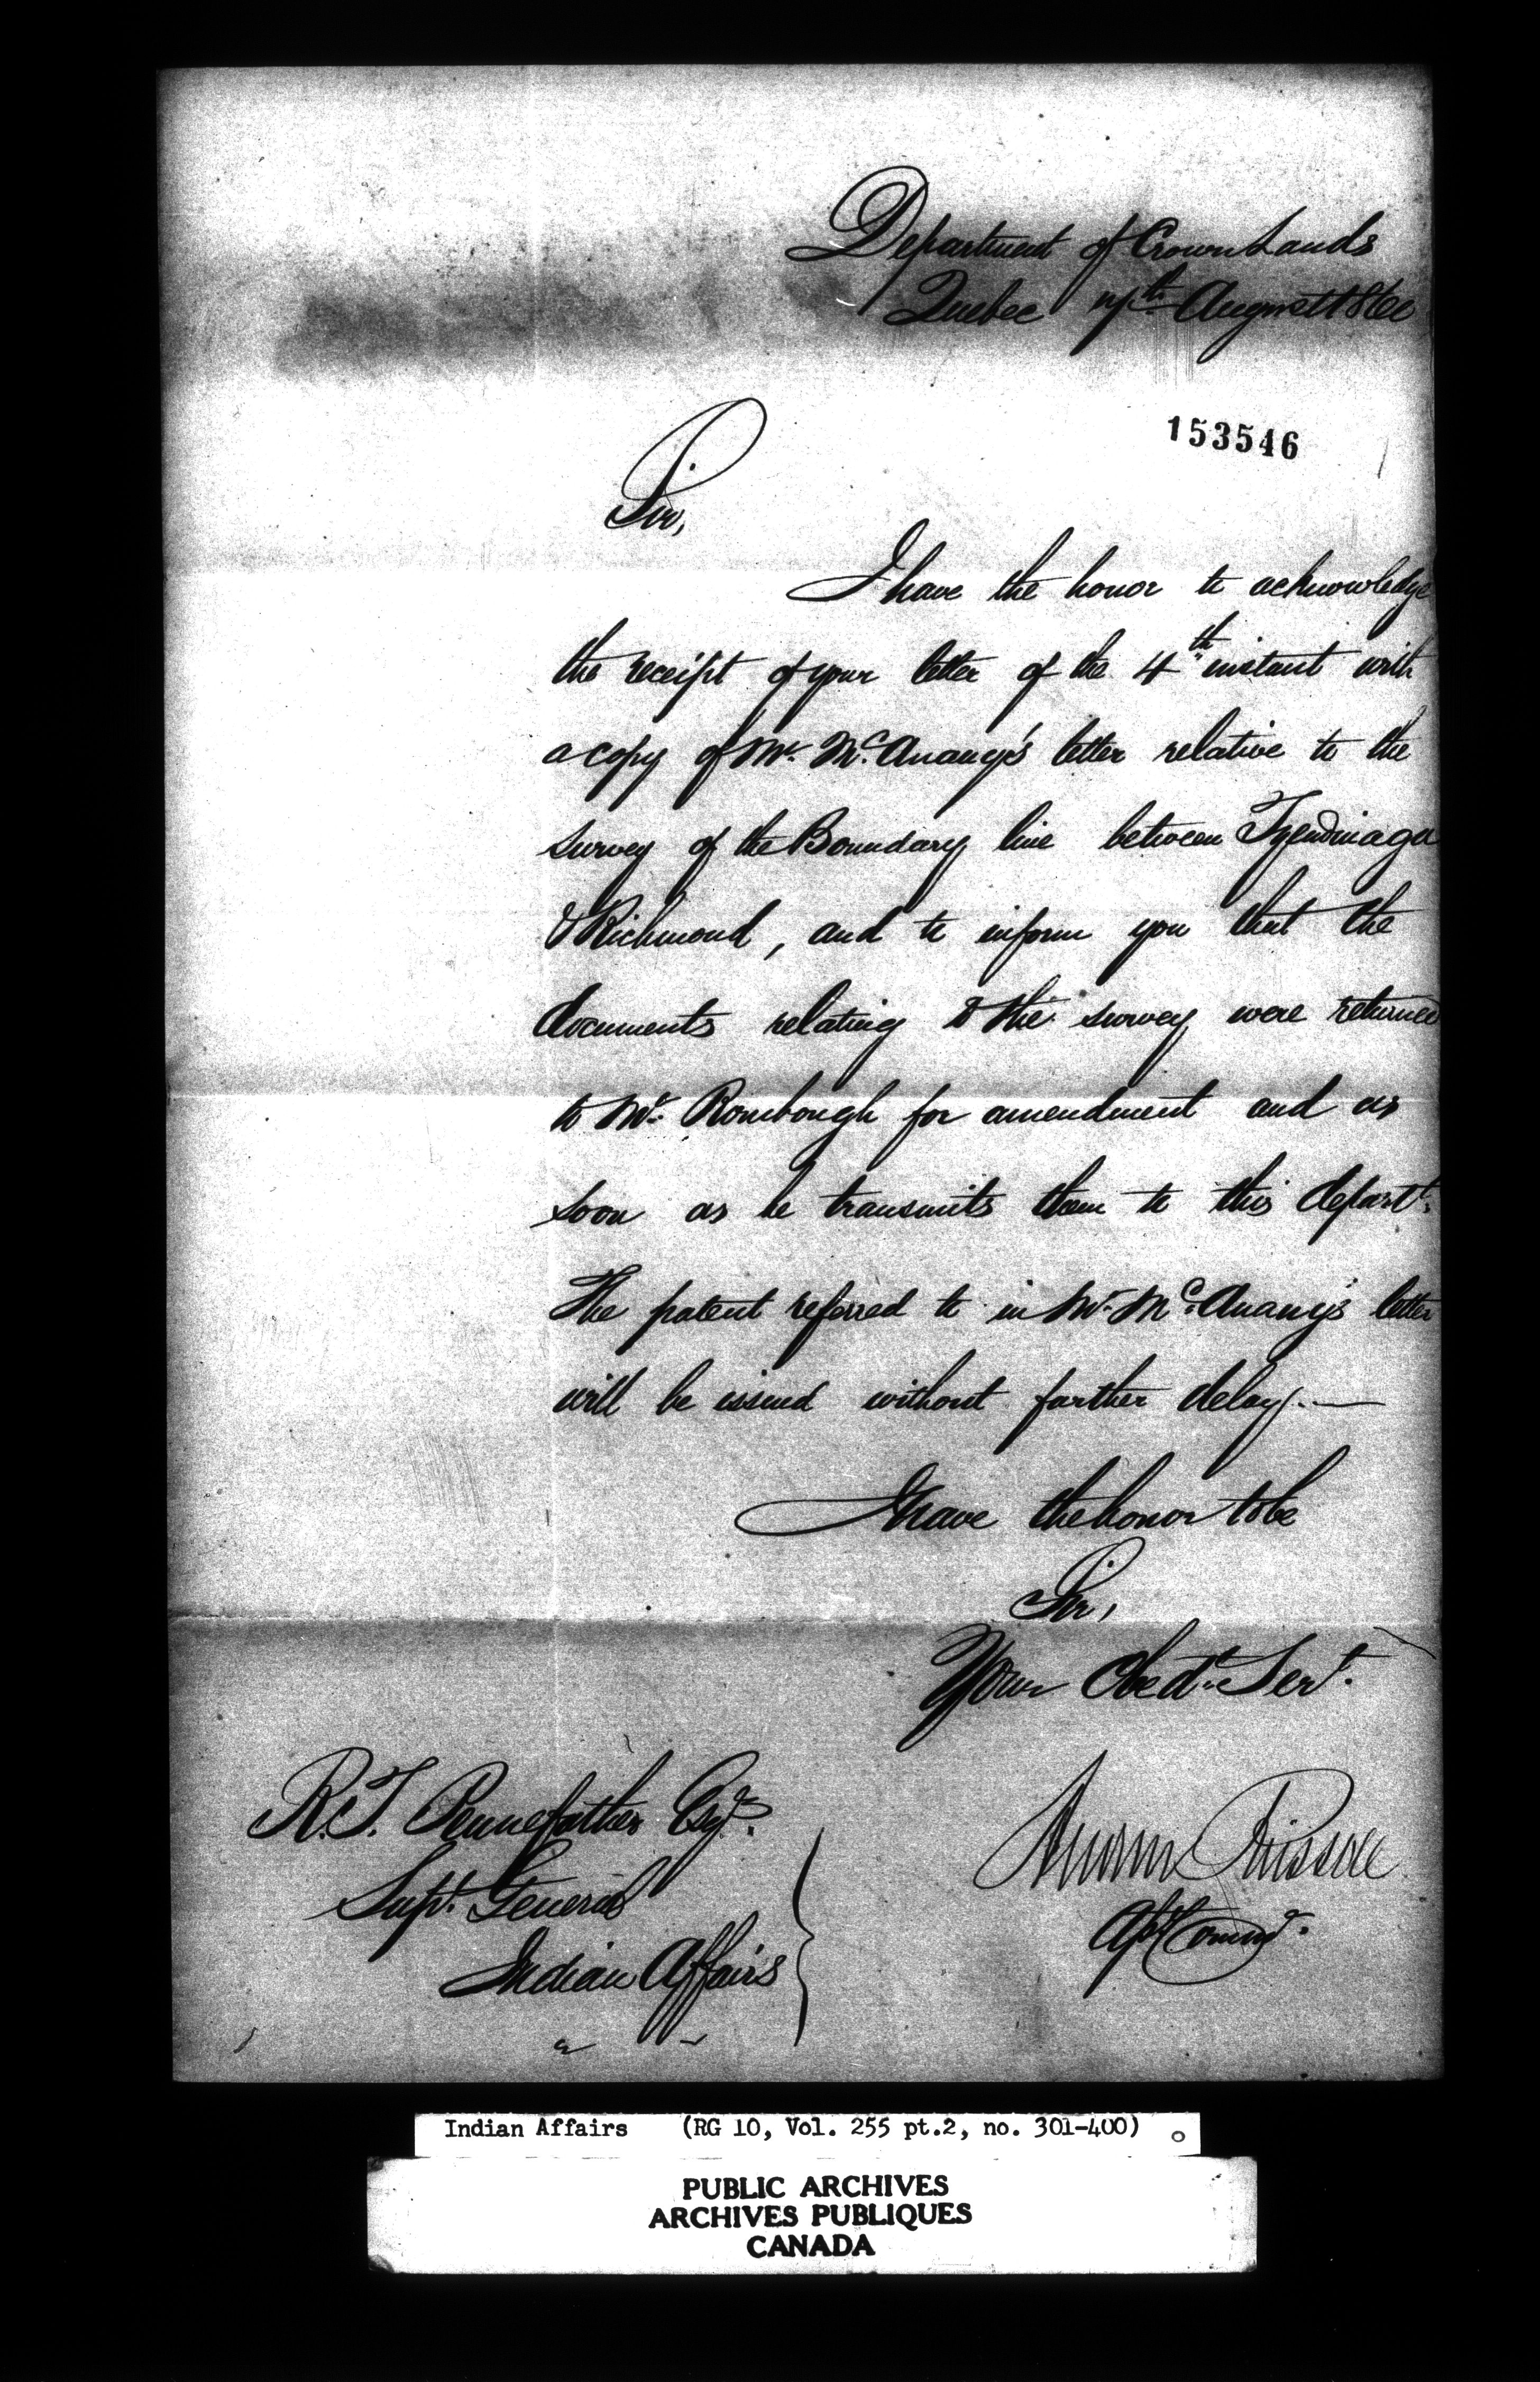 Department of Crown Lands
Quebec 7th August 1860
153546
Sir,
I have the honor to acknowledge
the receipt of your letter of the 4th instant with
a copy of Mr. McAnany's letter relative to the
survey of the Boundary line between Tyendinaga
& Richmond, and to inform you that the
documents relating to the survey were returned
to Mr. Rombough for amendment and as
soon as he transmits them to this depart.t
The patent referred to in Mr. McAnany's letter
will be issued without farther delay. —
I have the honor to be
Sir,
Your Obed.t Ser.t
R. T. Pennefather Esq.r
Sup.t General
Indian Affairs
Andrew Russell
Ass.t Comm.r
Indian Affairs (RG 10, Vol. 255 pt.2, no. 301-400)
PUBLIC ARCHIVES
ARCHIVES PUBLIQUES
CANADA